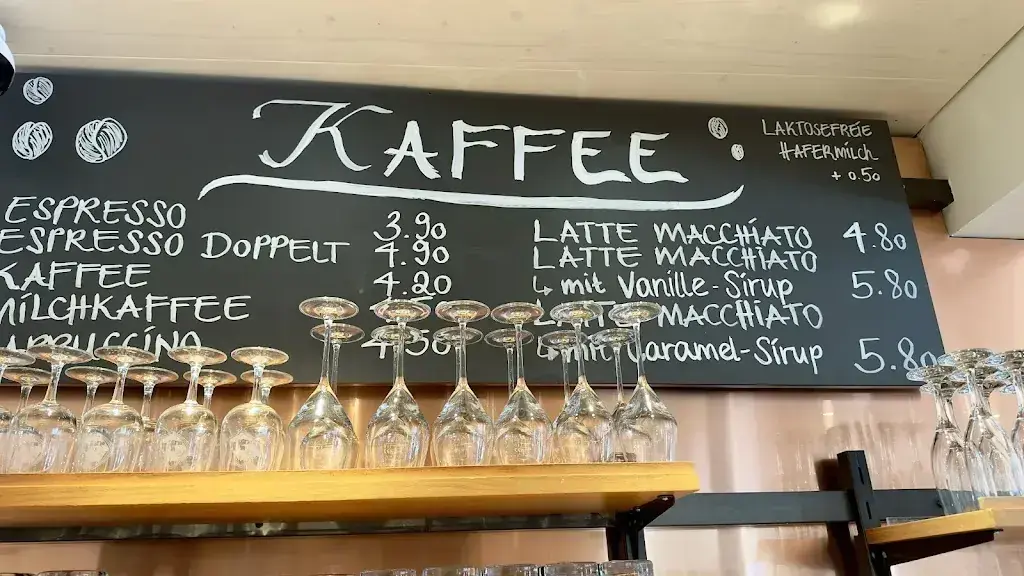 KAFFEE
LAKTOSEFREIE
HAFERMILCH
+ 0.50
ESPRESSO 3.90
ESPRESSO DOPPELT 4.90
KAFFEE 4.20
MILCHKAFFEE
CAPPUCCINO 4.50
LATTE MACCHIATO 4.80
LATTE MACCHIATO
↳ mit Vanille-Sirup 5.80
LATTE MACCHIATO
↳ mit Caramel-Sirup 5.80